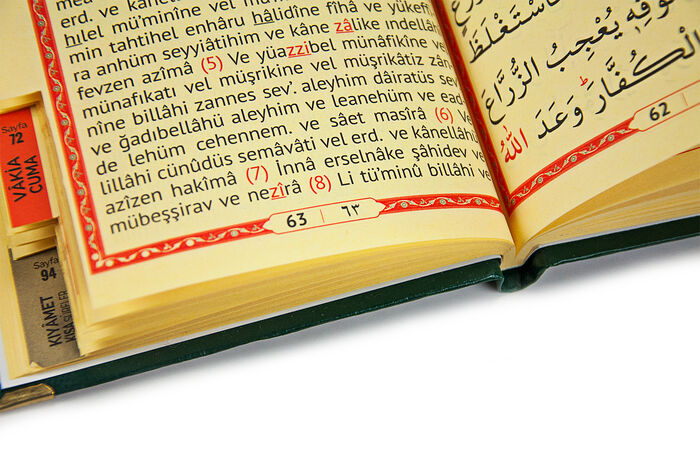 erd. ve
vel
ve yükefi
hılel mü'minîne vel mü'
hâlidîne fîhâ
min tahtihel enhâru
ra anhüm seyyiâtihim ve kâne zâlike ındellâh
fevzen azîmâ (5) Ve yüazzibel münâfikîne ve
münafıkatı vel müşrikîne vel müşrikâtiz zân
nîne billâhi zannes sev'. aleyhim dâiratüs
ve ğadıbellâhü aleyhim ve leanehüm ve ead
de lehüm cehennem. ve sâet masîrâ (6) Ve
lillâhi cünûdüs semâvâti vel erd. ve kânellâhü
azîzen hakîmâ (7) İnnâ erselnâke şâhidev
mübeşşirav ve nezîrâ (8) Li tü'minû billâhi ve
63 | ٦٣
فَاسْتَغْلَظَ
سُوقِهِ يُعْجِبُ الزُّرَّاعَ
الْكُفَّارَ وَعَدَ اللّٰهُ
62
Sayfa
72
VÂKIA
CUMA
Sayfa
94
KIYÂMET
KISA SÛRELER